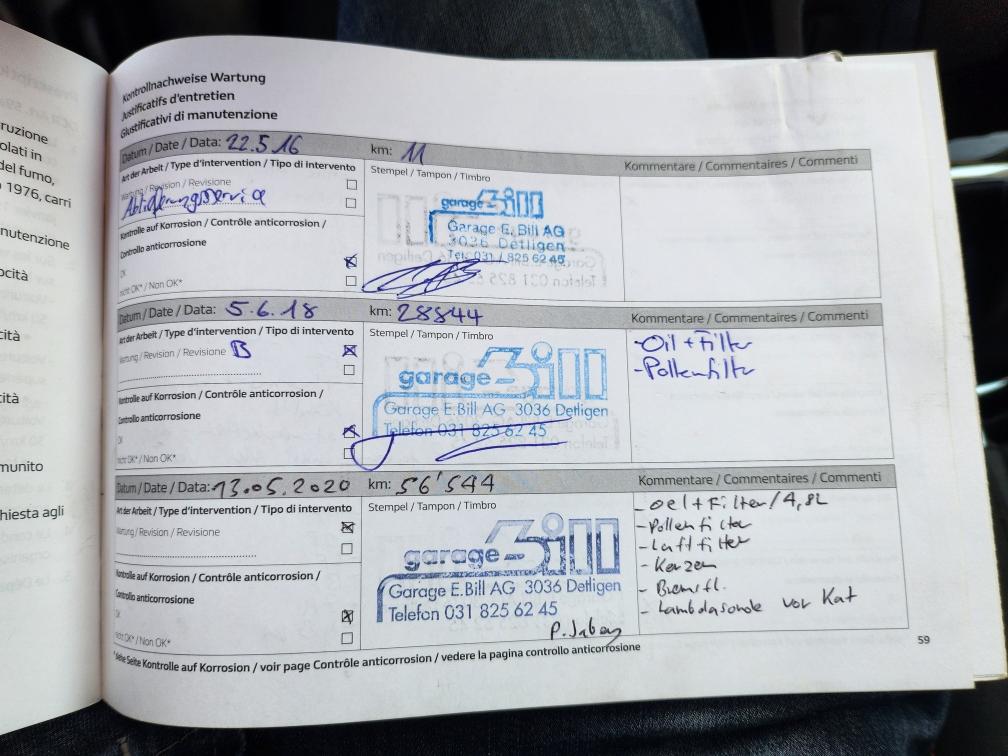 ruzione
olati in
del fumo,
1976, carri
nutenzione
ocità
cità
cità
munito
hiesta agli
Kontrollnachweise Wartung
Justificatifs d'entretien
Giustificativi di manutenzione
Datum / Date / Data: 22.5.16 km: 11
Kommentare / Commentaires / Commenti
Art der Arbeit / Type d'intervention / Tipo di intervento
Stempel / Tampon / Timbro
Wartung / Revision / Revisione
Ablieferungsservice
garage Bill
Garage E. Bill AG
3036 Detligen
Tel. 031 / 825 62 45
Kontrolle auf Korrosion / Contrôle anticorrosion /
Controllo anticorrosione
OK
nicht OK* / Non OK*
Datum / Date / Data: 5.6.18 km: 28844
Kommentare / Commentaires / Commenti
Art der Arbeit / Type d'intervention / Tipo di intervento
Stempel / Tampon / Timbro
Wartung / Revision / Revisione B
garage Bill
Garage E.Bill AG 3036 Detligen
Telefon 031 825 62 45
- Oil + Filter
- Pollenfilter
Kontrolle auf Korrosion / Contrôle anticorrosion /
Controllo anticorrosione
OK
nicht OK* / Non OK*
Datum / Date / Data: 13.05.2020 km: 56'544
Kommentare / Commentaires / Commenti
Art der Arbeit / Type d'intervention / Tipo di intervento
Stempel / Tampon / Timbro
Wartung / Revision / Revisione
garage Bill
Garage E.Bill AG 3036 Detligen
Telefon 031 825 62 45
- Oel + Filter / 4,8L
- Pollenfilter
- Luftfilter
- Kerzen
- Bremsfl.
- Lambdasonde vor Kat
Kontrolle auf Korrosion / Contrôle anticorrosion /
Controllo anticorrosione
OK
nicht OK* / Non OK*
*siehe Seite Kontrolle auf Korrosion / voir page Contrôle anticorrosion / vedere la pagina controllo anticorrosione
59